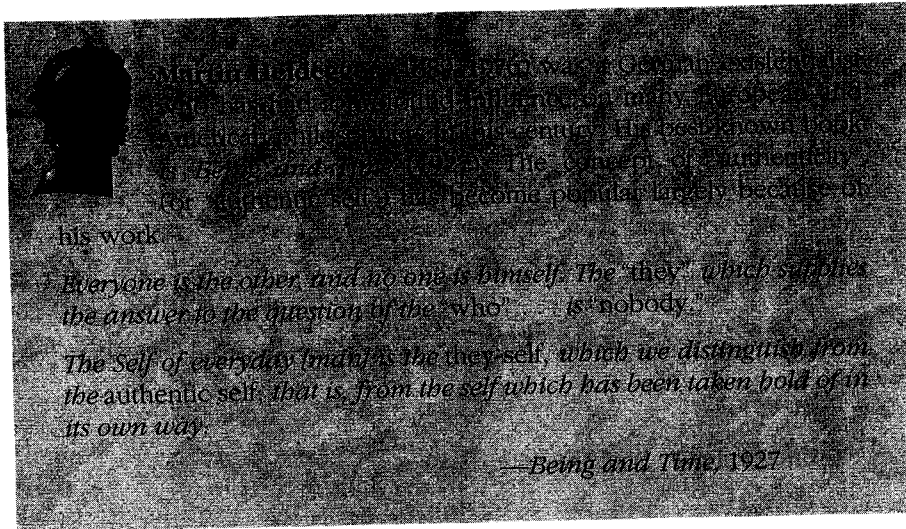 Martin Heidegger (1889–1976) was a German existentialist
who exerted a profound influence on many European and
American philosophers of this century. His best-known book
is Being and Time (1927). The concept of "authenticity"
(or "authentic self") has become popular largely because of
his work.
Everyone is the other, and no one is himself. The "they", which supplies
the answer to the question of the "who" . . . is "nobody."
The Self of everyday [man] is the they-self, which we distinguish from
the authentic self; that is, from the self which has been taken hold of in
its own way.
—Being and Time, 1927